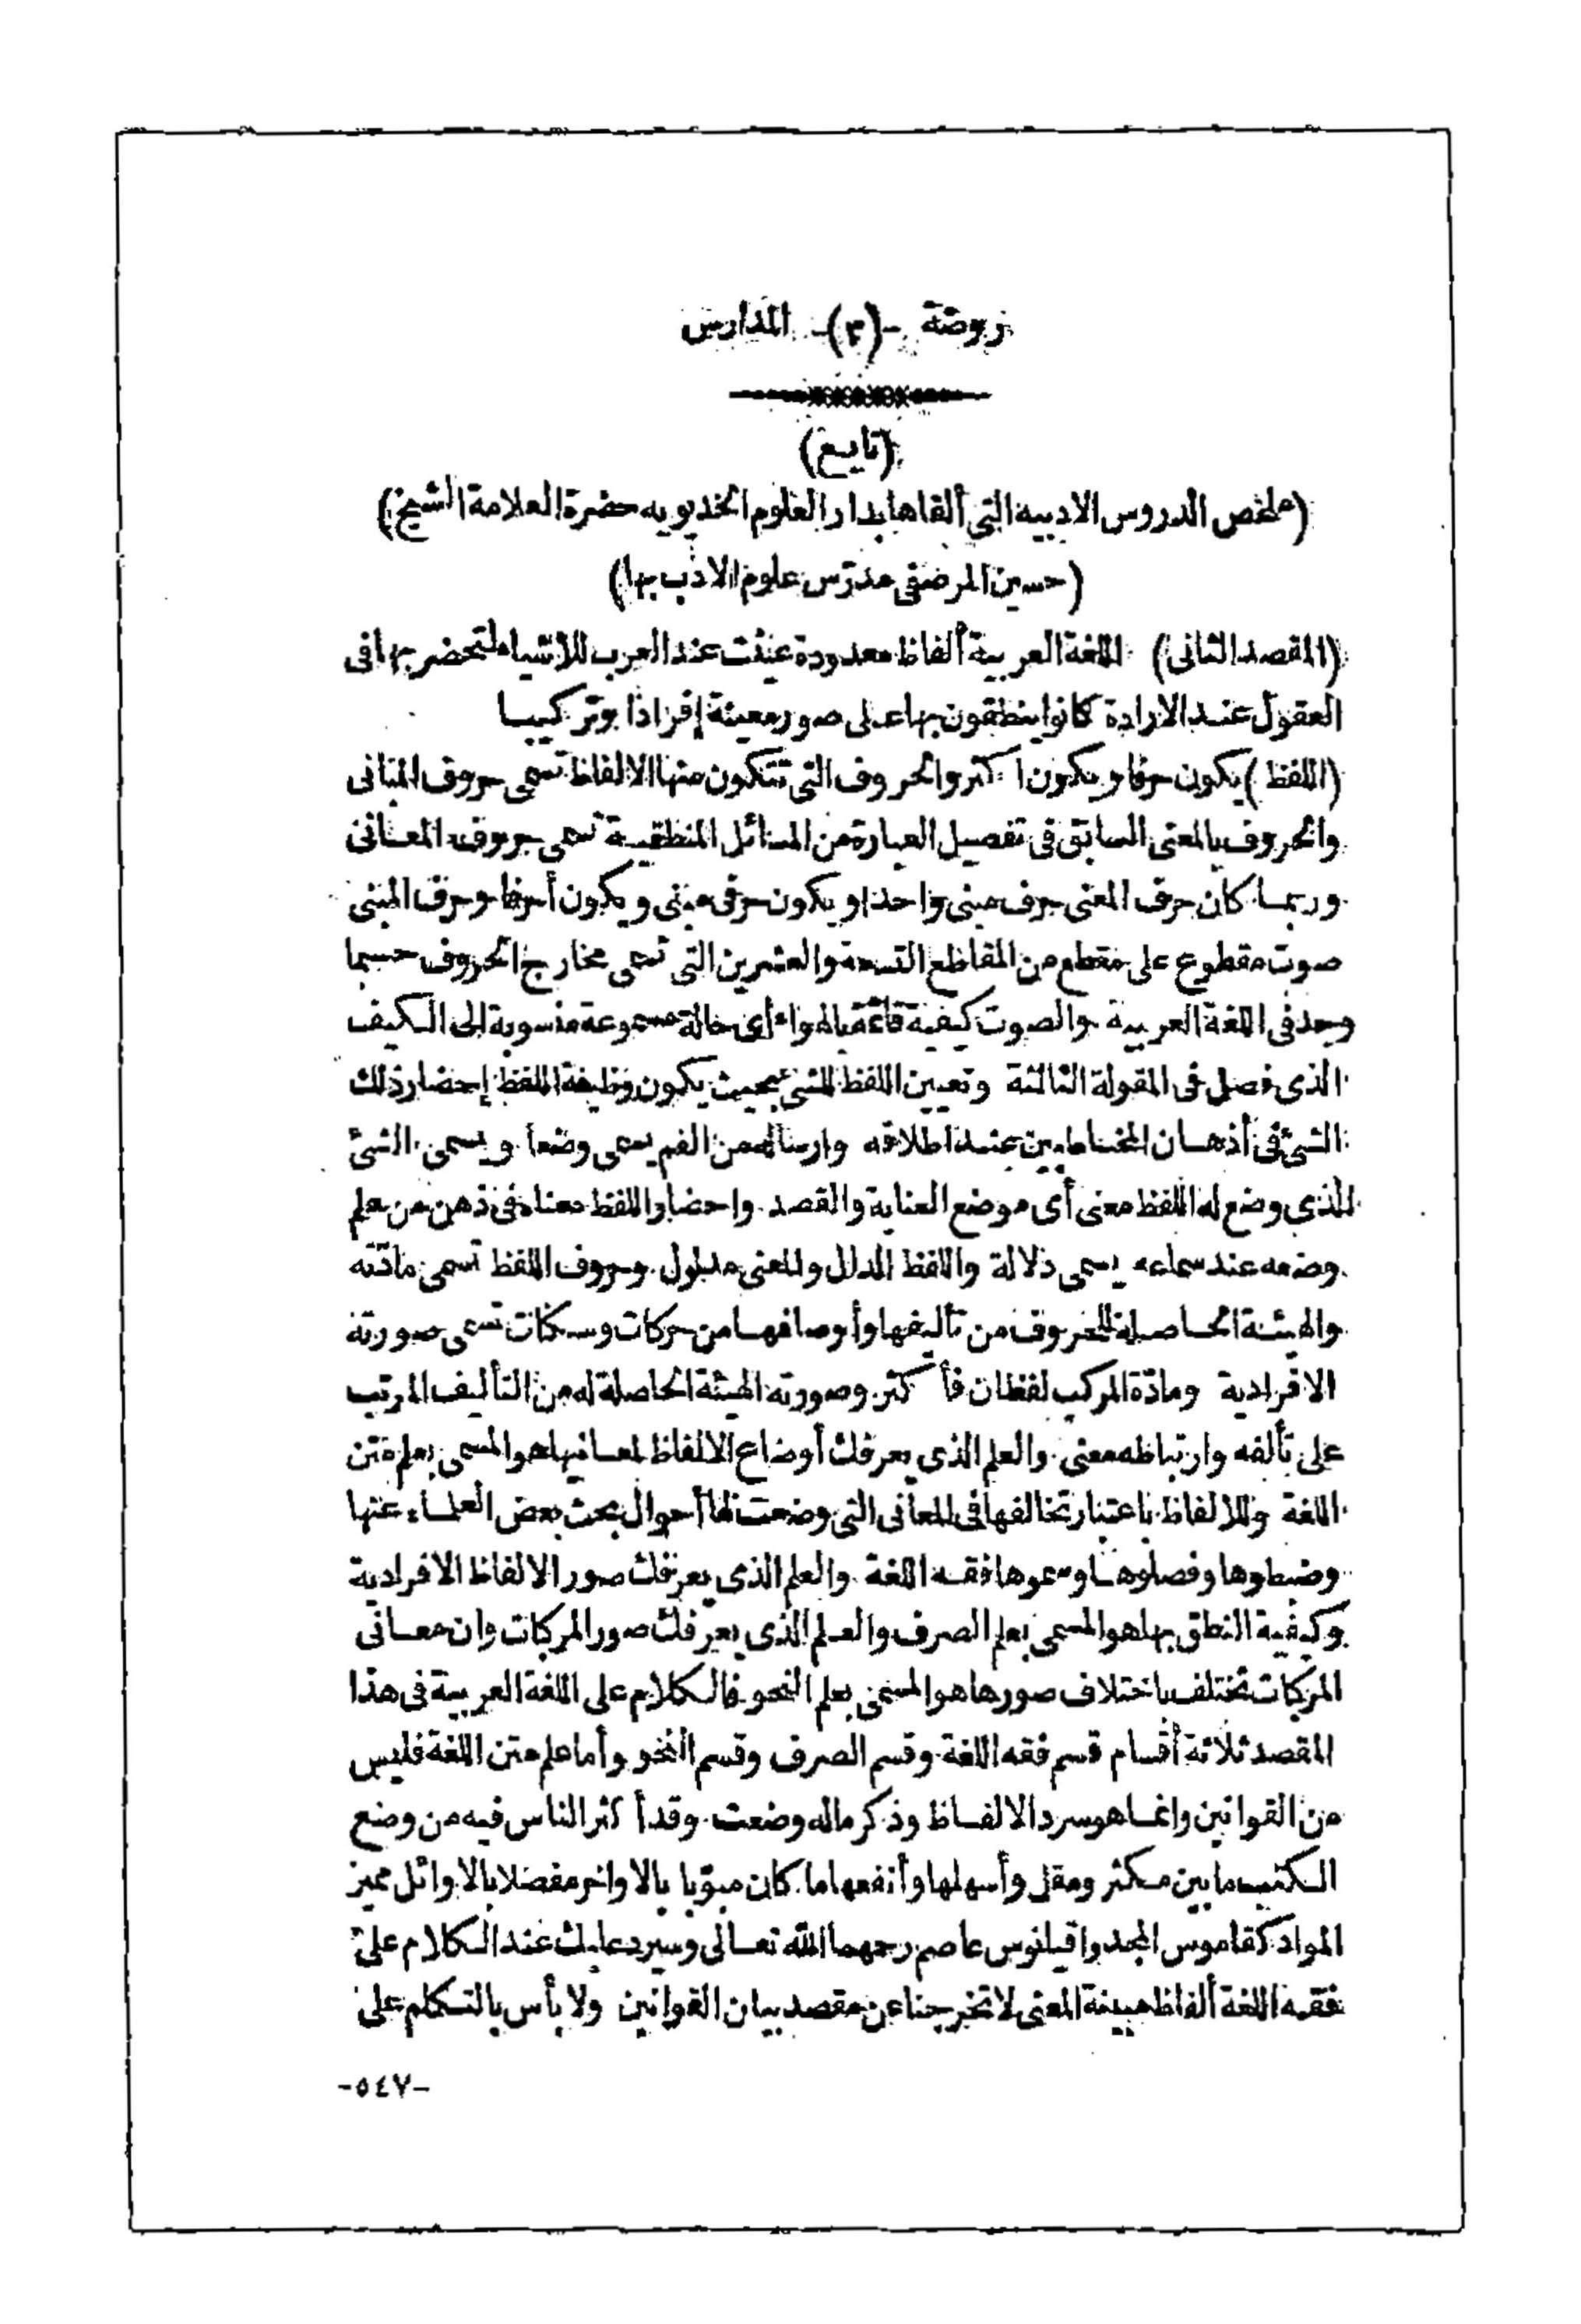 روضة -(٣)- المدارس
(تابع)
(ملخص الدروس الادبيه التى ألقاها بدار العلوم الخديويه حضرة العلامة الشيخ)
(حسين المرصفى مدرّس علوم الادب بها)
(المقصد الثانى) اللغة العربية ألفاظ معدودة عينت عند العرب للاشياء لتحضر بها فى
العقول عند الارادة كانوا ينطقون بها على صور معينة إفرادا وتركيبا
(اللفظ) يكون حرفا ويكون اكثر والحروف التى تتكون منها الالفاظ تسمى حروف المبانى
والحروف بالمعنى السابق فى تفصيل العبارة من المسائل المنطقية تسمى حروف المعانى
وربما كان حرف المعنى حرف مبنى واحدا ويكون حرفى مبنى ويكون أحرفا وحرف المبنى
صوت مقطوع على مقطع من المقاطع التسعة والعشرين التى تسمى مخارج الحروف حسبما
وجد فى اللغة العربية والصوت كيفية قائمة بالهواء أى حالة مسموعة منسوبة الى الكيف
الذى فصل فى المقولة الثالثة وتعيين اللفظ للشئ بحيث يكون وظيفة اللفظ إحضار ذلك
الشئ فى أذهان المخاطبين عند اطلاقه وارساله من الفم يسمى وضعا ويسمى الشئ
الذى وضع له اللفظ معنى أى موضع العناية والقصد واحضار اللفظ معناه فى ذهن من علم
وضعه عند سماعه يسمى دلالة واللفظ الدال والمعنى مدلول وحروف اللفظ تسمى مادّته
والهيئة الحاصلة للحروف من تأليفها وأوصافها من حركات وسكنات تسمى صورته
الافرادية ومادّة المركب لفظان فأكثر وصورته الهيئة الحاصلة له من التأليف المرتب
على تألفه وارتباطه معنى والعلم الذى يعرفك أوضاع الالفاظ لمعانيها هو المسمى بعلم متن
اللغة وللالفاظ باعتبار تخالفها فى المعانى التى وضعت لها أحوال بحث بعض العلماء عنها
وضبطوها وفصلوها وسموها فقه اللغة والعلم الذى يعرفك صور الالفاظ الافرادية
وكيفية النطق بها هو المسمى بعلم الصرف والعلم الذى يعرّفك صور المركبات وان معانى
المركبات تختلف باختلاف صورها هو المسمى بعلم النحو فالكلام على اللغة العربية فى هذا
المقصد ثلاثة أقسام قسم فقه اللغة وقسم الصرف وقسم النحو وأما علم متن اللغة فليس
من القوانين وانما هو سرد الالفاظ وذكر ماله وضعت وقد أكثر الناس فيه من وضع
الكتب ما بين مكثر ومقل وأسهلها وأنفعها ما كان مبوّبا بالاواخر مفصلا بالاوائل مميز
المواد كقاموس المجد واقيانوس عاصم رحمهما الله تعالى وسيرد عليك عند الكلام على
فقه اللغة ألفاظ مبينة المعنى لا تخرجنا عن مقصد بيان القوانين ولا بأس بالتكلم على
-٥٤٧-